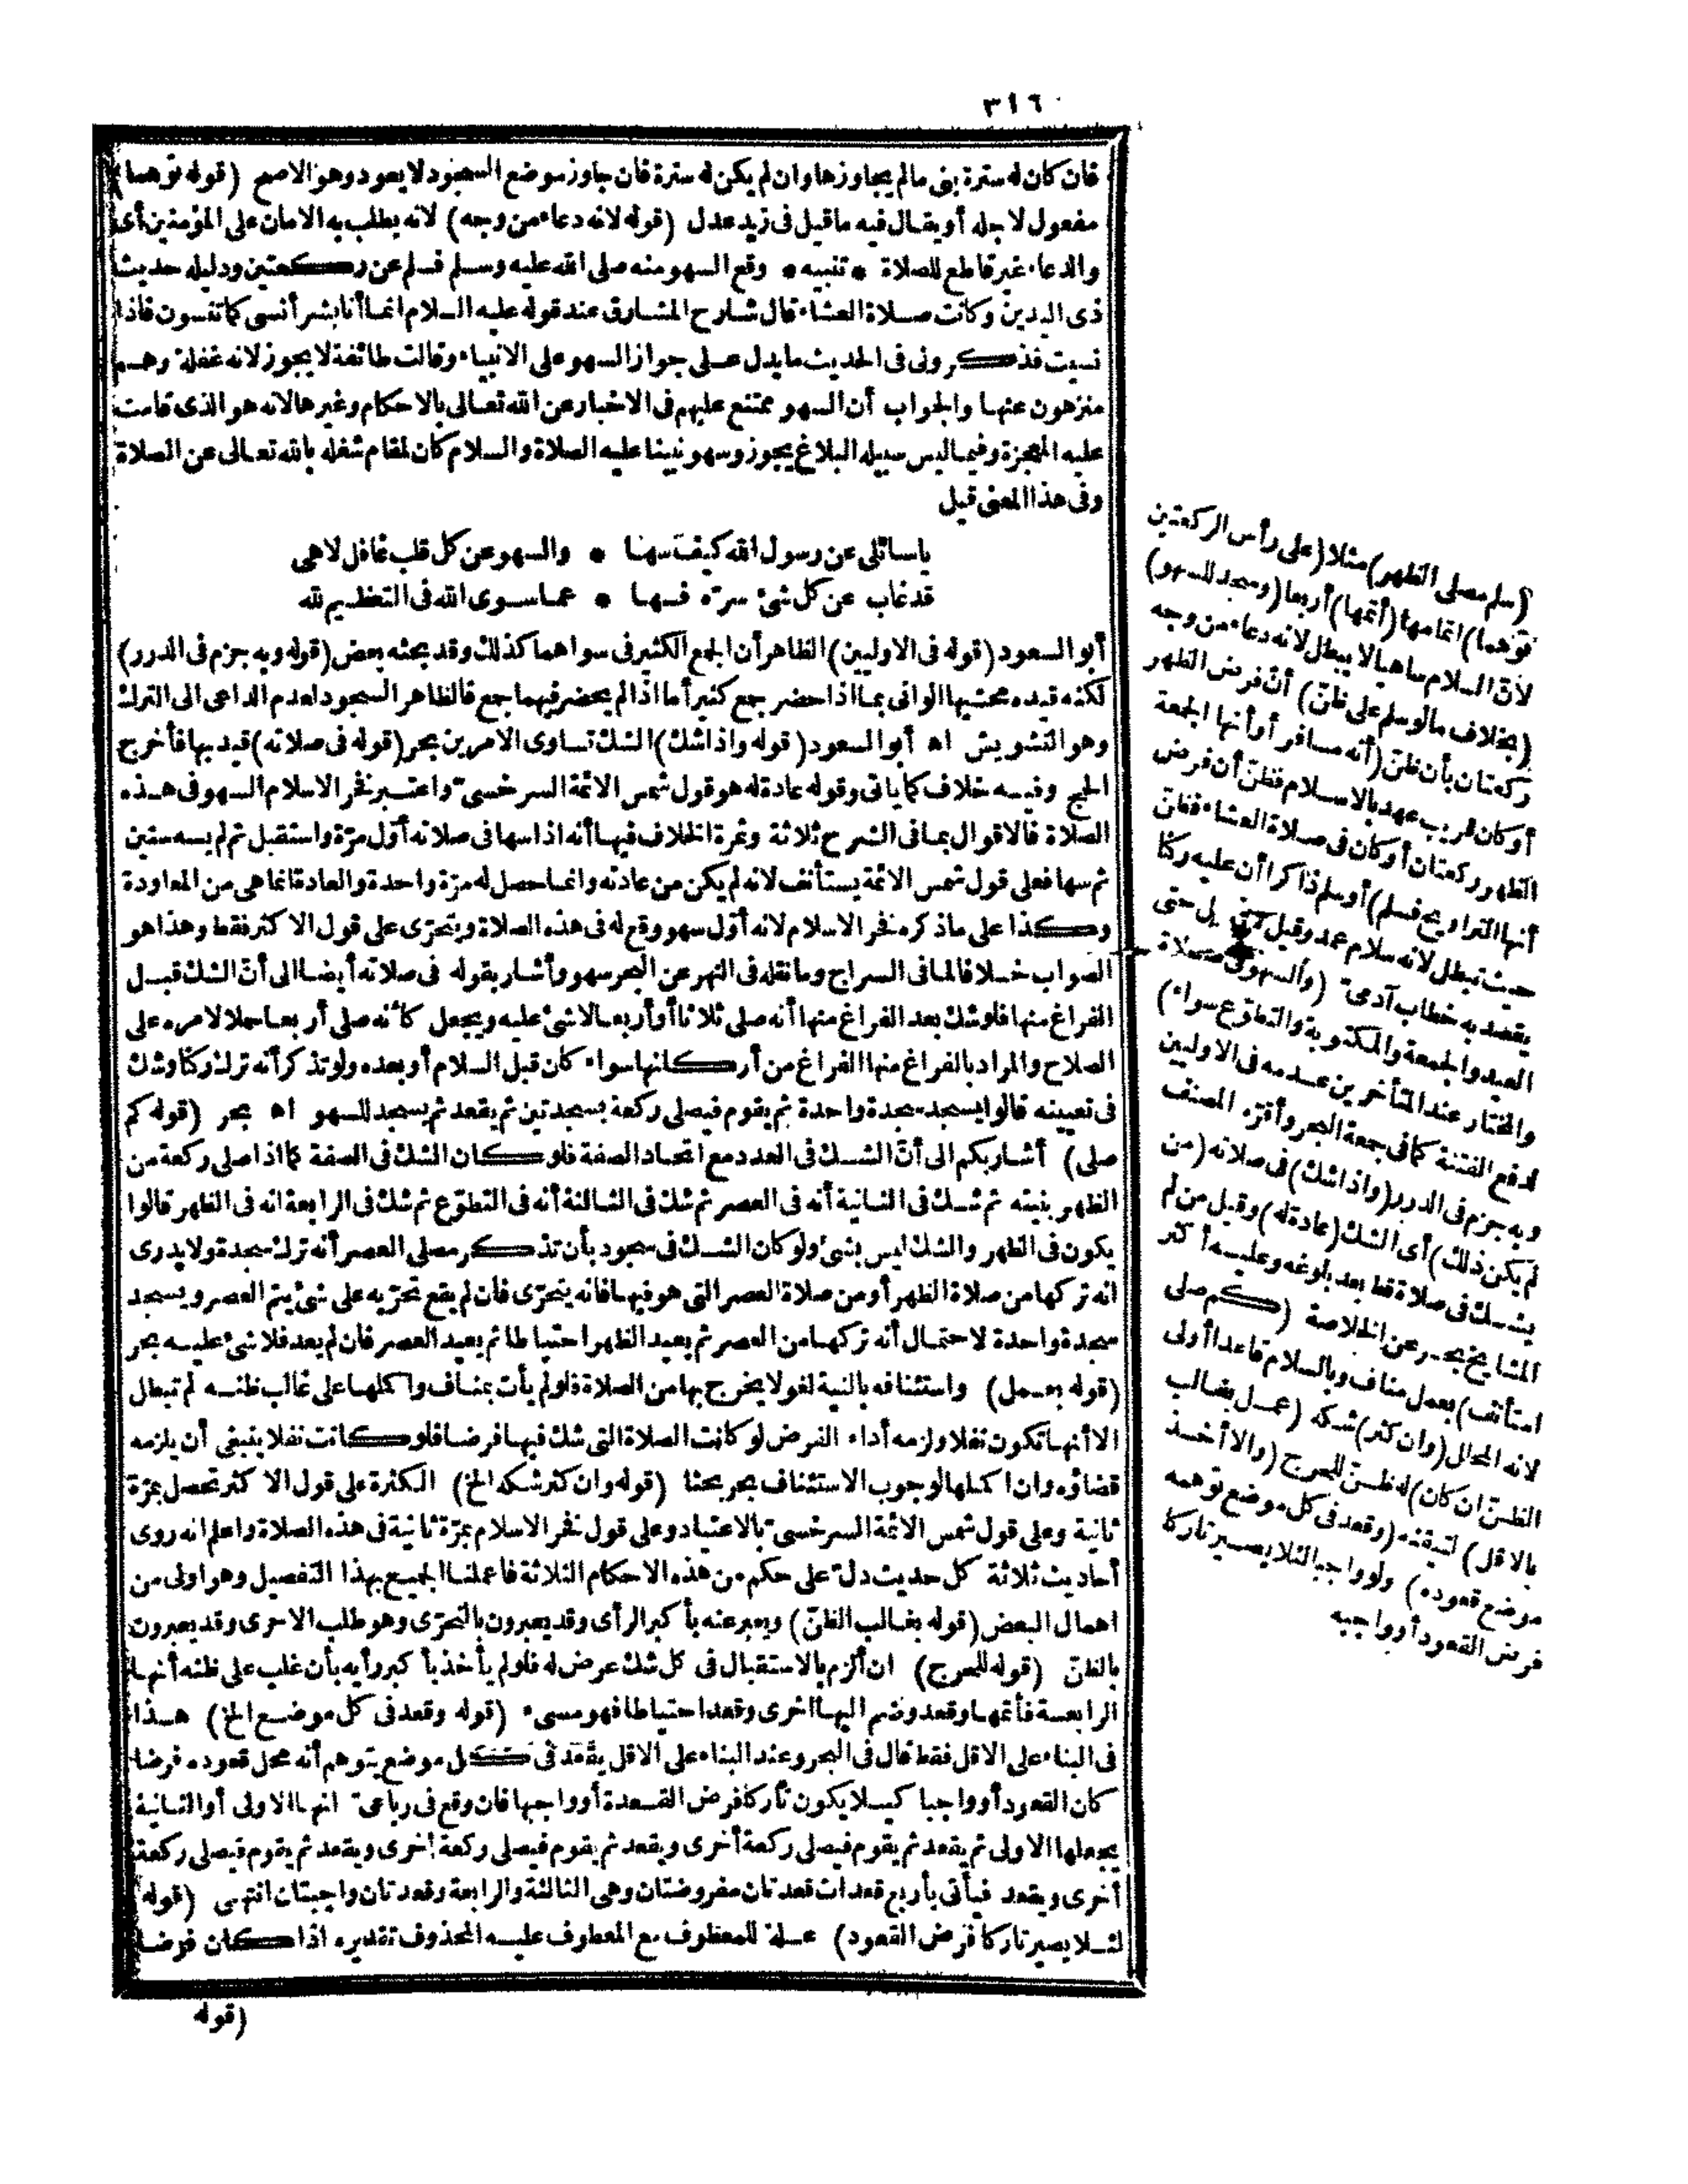 ٣١٦
فان كان له سترة بنى مالم يجاوزها وان لم يكن له سترة فان جاوز موضع السجود لا يعود وهو الاصح (قوله توهما)
مفعول لاجله أو يقال فيه ما قيل فى زيد عدل (قوله لانه دعاء من وجه) لانه يطلب به الامان على المؤمنين أى
والدعاء غير قاطع للصلاة * تنبيه * وقع السهو منه صلى الله عليه وسلم فسلم عن ركعتين ودليله حديث
ذى اليدين وكانت صلاة العشاء قال شارح المشارق عند قوله عليه السلام انما أنا بشر أنسى كما تنسون فاذا
نسيت فذكرونى فى الحديث ما يدل على جواز السهو على الانبياء وقالت طائفة لا يجوز لانه غفلة وهم
منزهون عنها والجواب أن السهو ممتنع عليهم فى الاخبار عن الله تعالى بالاحكام وغيرها لانه هو الذى قامت
عليه المعجزة وفيما ليس سبيله البلاغ يجوز وسهو نبينا عليه الصلاة والسلام كان لمقام شغله بالله تعالى عن الصلاة
وفى هذا المعنى قيل
ياسائلى عن رسول الله كيف سها * والسهو عن كل قلب غافل لاهى
قد غاب عن كل شئ سره فسها * عما سوى الله فى التعظيم لله
أبو السعود (قوله فى الاوليين) الظاهر أن الجمع الكثير فى سواهما كذلك وقد بحثه بعض (قوله وبه جزم فى الدرر)
لكنه قيده محشيها الوانى بما اذا حضر جمع كثير أما اذا لم يحضر فيهما جمع فالظاهر السجود لعدم الداعى الى الترك
وهو التشويش اه أبو السعود (قوله واذا شك) الشك تساوى الامرين بحر (قوله فى صلاته) قيد بها فأخرج
الحج وفيه خلاف كما يأتى وقوله عادة له هو قول شمس الائمة السرخسىّ واعتبر فخر الاسلام السهو فى هذه
الصلاة فالاقوال بما فى الشرح ثلاثة وثمرة الخلاف فيها أنه اذا سها فى صلاته أوّل مرّة واستقبل ثم لم يسه سنين
ثم سها فعلى قول شمس الائمة يستأنف لانه لم يكن من عادته وانما حصل له مرّة واحدة والعادة انما هى من المعاودة
وكذا على ما ذكره فخر الاسلام لانه أوّل سهو وقع له فى هذه الصلاة ويتحرّى على قول الاكثر فقط وهذا هو
الصواب خلافا لما فى السراج وما نقله فى النهر عن البحر سهو وأشار بقوله فى صلاته أيضا الى أنّ الشك قبل
الفراغ منها فلو شك بعد الفراغ منها أنه صلى ثلاثا أو أربعا لا شئ عليه ويجعل كأنه صلى أربعا حملا لامره على
الصلاح والمراد بالفراغ منها الفراغ من أركانها سواء كان قبل السلام أو بعده ولو تذكر أنه ترك ركنا وشك
فى تعيينه قالوا يسجد سجدة واحدة ثم يقوم فيصلى ركعة بسجدتين ثم يقعد ثم يسجد للسهو اه بحر (قوله كم
صلى) أشار بكم الى أنّ الشك فى العدد مع اتحاد الصفة فلو كان الشك فى الصفة كما اذا صلى ركعة من
الظهر بنيته ثم شك فى الثانية أنه فى العصر ثم شك فى الثالثة أنه فى التطوّع ثم شك فى الرابعة انه فى الظهر قالوا
يكون فى الظهر والشك ليس بشئ ولو كان الشك فى سجود بأن تذكر مصلى العصر أنه ترك سجدة ولا يدرى
انه تركها من صلاة الظهر أو من صلاة العصر التى هو فيها فانه يتحرّى فان لم يقع تحرّيه على شئ يتم العصر ويسجد
سجدة واحدة لاحتمال أنه تركها من العصر ثم يعيد الظهر احتياطا ثم يعيد العصر فان لم يعد فلا شئ عليه بحر
(قوله بعمل) واستئنافه بالنية لغو لا يخرج بها من الصلاة فلو لم يأت بمناف وأكملها على غالب ظنه لم تبطل
الا أنها تكون نفلا ولزمه أداء الفرض لو كانت الصلاة التى شك فيها فرضا فلو كانت نفلا ينبغى أن يلزمه
قضاؤه وان اكملها لوجوب الاستئناف بحر بحثا (قوله وان كثر شكه الخ) الكثرة على قول الاكثر تحصل بمرّة
ثانية وعلى قول شمس الائمة السرخسىّ بالاعتياد وعلى قول فخر الاسلام بمرّة ثانية فى هذه الصلاة واعلم انه روى
أحاديث ثلاثة كل حديث دلّ على حكم من هذه الاحكام الثلاثة فاعملنا الجميع بهذا التفصيل وهو اولى من
اهمال البعض (قوله بغالب الظنّ) ويعبر عنه بأكبر الرأى وقد يعبرون بالتحرّى وهو طلب الاحرى وقد يعبرون
بالظنّ (قوله للحرج) ان ألزم بالاستقبال فى كل شك عرض له فلو لم يأخذ بأكبر رأيه بأن غلب على ظنه أنها
الرابعة فأتمها وقعد وضم اليها اخرى وقعد احتياطا فهو مسىء (قوله وقعد فى كل موضع الخ) هذا
فى البناء على الاقل فقط قال فى البحر وعند البناء على الاقل يقعد فى كل موضع يتوهم أنه محل قعوده فرضا
كان القعود أو واجبا كيلا يكون تاركا فرض القعدة أو واجبها فان وقع فى رباعىّ انها الاولى أو الثانية
يجعلها الاولى ثم يقعد ثم يقوم فيصلى ركعة أخرى ويقعد ثم يقوم فيصلى ركعة اخرى ويقعد ثم يقوم فيصلى ركعة
أخرى ويقعد فيأتى بأربع قعدات قعدتان مفروضتان وهى الثالثة والرابعة وقعدتان واجبتان انتهى (قوله
لئلا يصير تاركا فرض القعود) علة للمعطوف مع المعطوف عليه المحذوف تقديره اذا كان فرضا
(قوله
(سلم مصلى الظهر) مثلا (على رأس الركعتين
توّهما) اتمامها (أتمها) أربعا (وسجد للسهو)
لأنّ السلام ساهيا لا يبطل لانه دعاء من وجه
(بخلاف ما لو سلم على ظنّ) أنّ فرض الظهر
ركعتان بأن ظنّ (أنه مسافر أو أنها الجمعة
أو كان قريب عهد بالاسلام فظنّ أن فرض
الظهر ركعتان أو كان فى صلاة العشاء فظنّ
أنها التراويح فسلم) أو سلم ذاكرا أن عليه ركنا
حيث تبطل لانه سلام عمد وقيل حتى
يقصد به خطاب آدمىّ (والسهو فى صلاة
العيد والجمعة والمكتوبة والتطوّع سواء)
والمختار عند المتأخرين عدمه فى الاوليين
لدفع الفتنة كما فى جمعة البحر وأقرّه المصنف
وبه جزم فى الدرر (واذا شك) فى صلاته (من
لم يكن ذلك) أى الشك (عادة له) وقيل من لم
يشك فى صلاة قط بعد بلوغه وعليه أكثر
المشايخ بحر عن الخلاصة (كم صلى
استأنف) بعمل مناف وبالسلام قاعدا أولى
لانه المحلل (وان كثر) شكه (عمل بغالب
الظنّ ان كان) له ظنّ للحرج (والا أخذ
بالاقل) لتيقنه (وقعد فى كل موضع توهمه
موضع قعوده) ولو واجبا لئلا يصير تاركا
فرض القعود أو واجبه